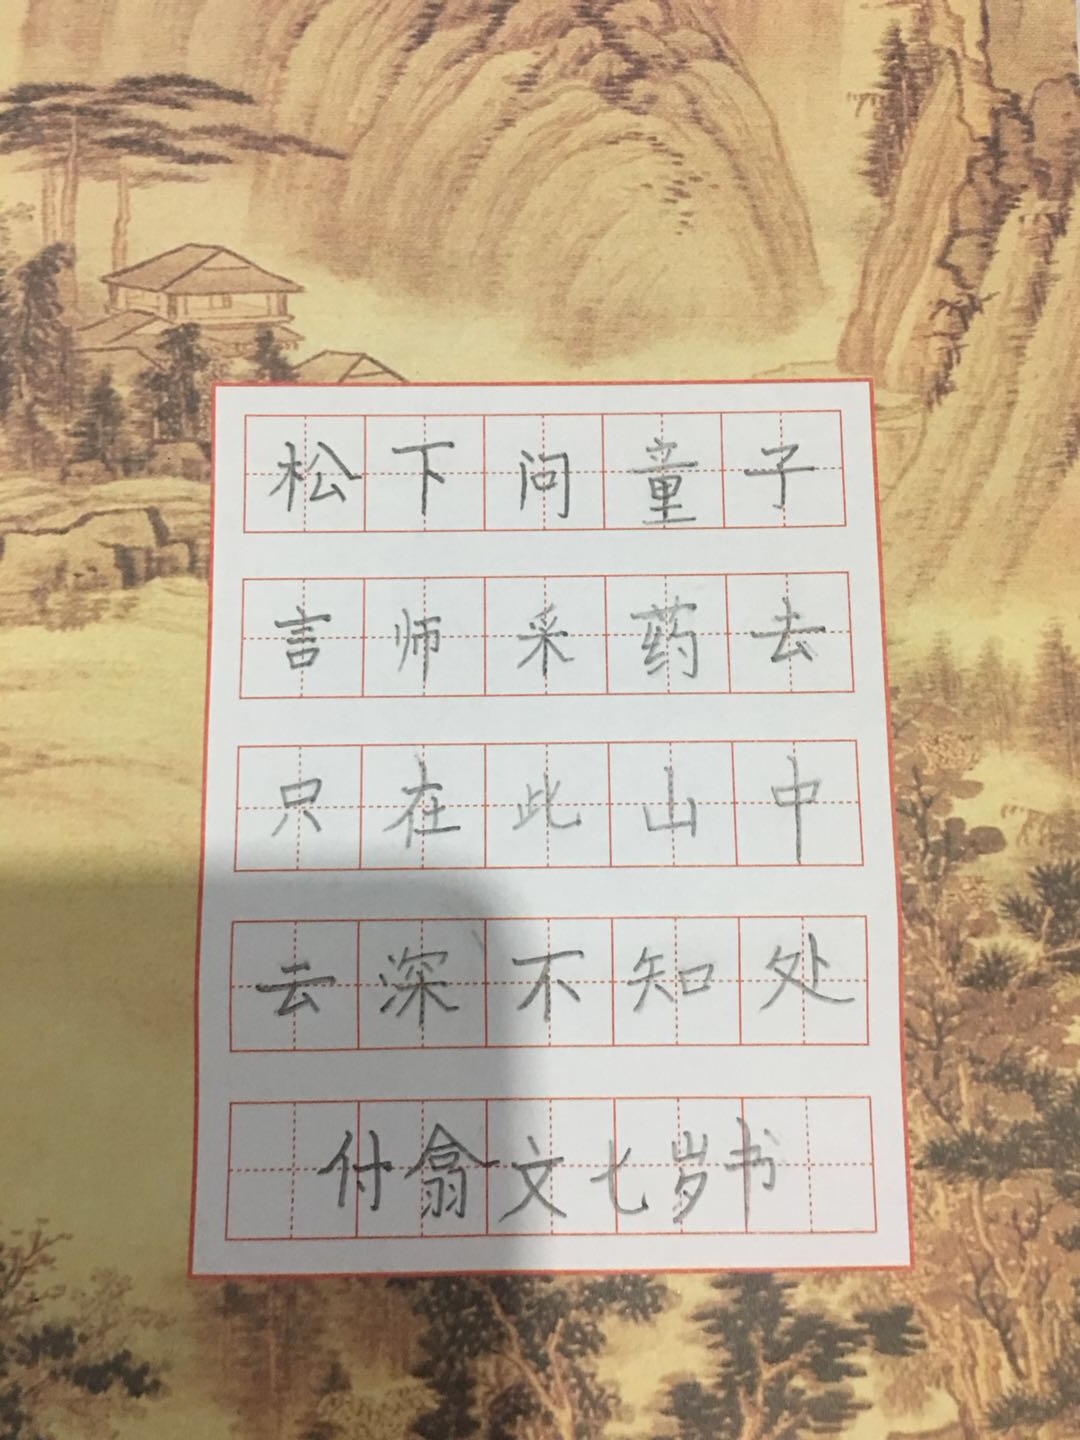 松下问童子
言师采药去
只在此山中
云深不知处
付翕文七岁书